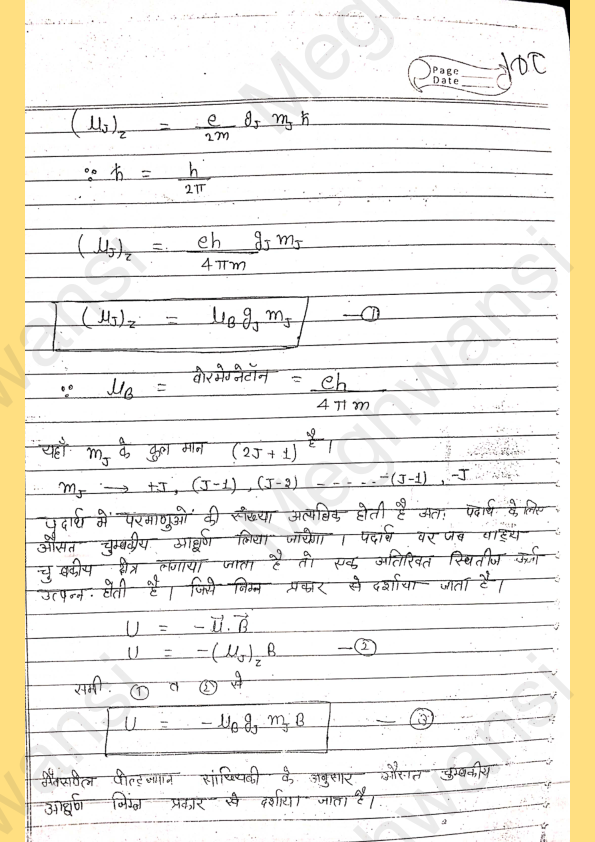 Page
Date
(μ_J)_z = e/2m g_J m_J ħ
∵ ħ = h/2π
(μ_J)_z = eh/4πm g_J m_J
(μ_J)_z = μ_B g_J m_J —①
∵ μ_B = बोरमेग्नेटॉन = eh/4πm
यहाँ m_J के कुल मान (2J+1) है।
m_J → +J, (J-1), (J-2) ------ -(J-1), -J
पदार्थ में परमाणुओं की संख्या अत्यधिक होती है अतः पदार्थ के लिए
औसत चुम्बकीय आघूर्ण लिया जायेगा। पदार्थ पर जब बाह्य
चुम्बकीय क्षेत्र लगाया जाता है तो एक अतिरिक्त स्थितीज ऊर्जा
उत्पन्न होती है। जिसे निम्न प्रकार से दर्शाया जाता है।
U = -μ⃗.B⃗
U = -(μ_J)_z B —②
समी. ① व ② से
U = -μ_B g_J m_J B —③
मैक्सवेल बोल्ट्जमान सांख्यिकी के अनुसार औसत चुम्बकीय
आघूर्ण निम्न प्रकार से दर्शाया जाता है।
Meghwansi